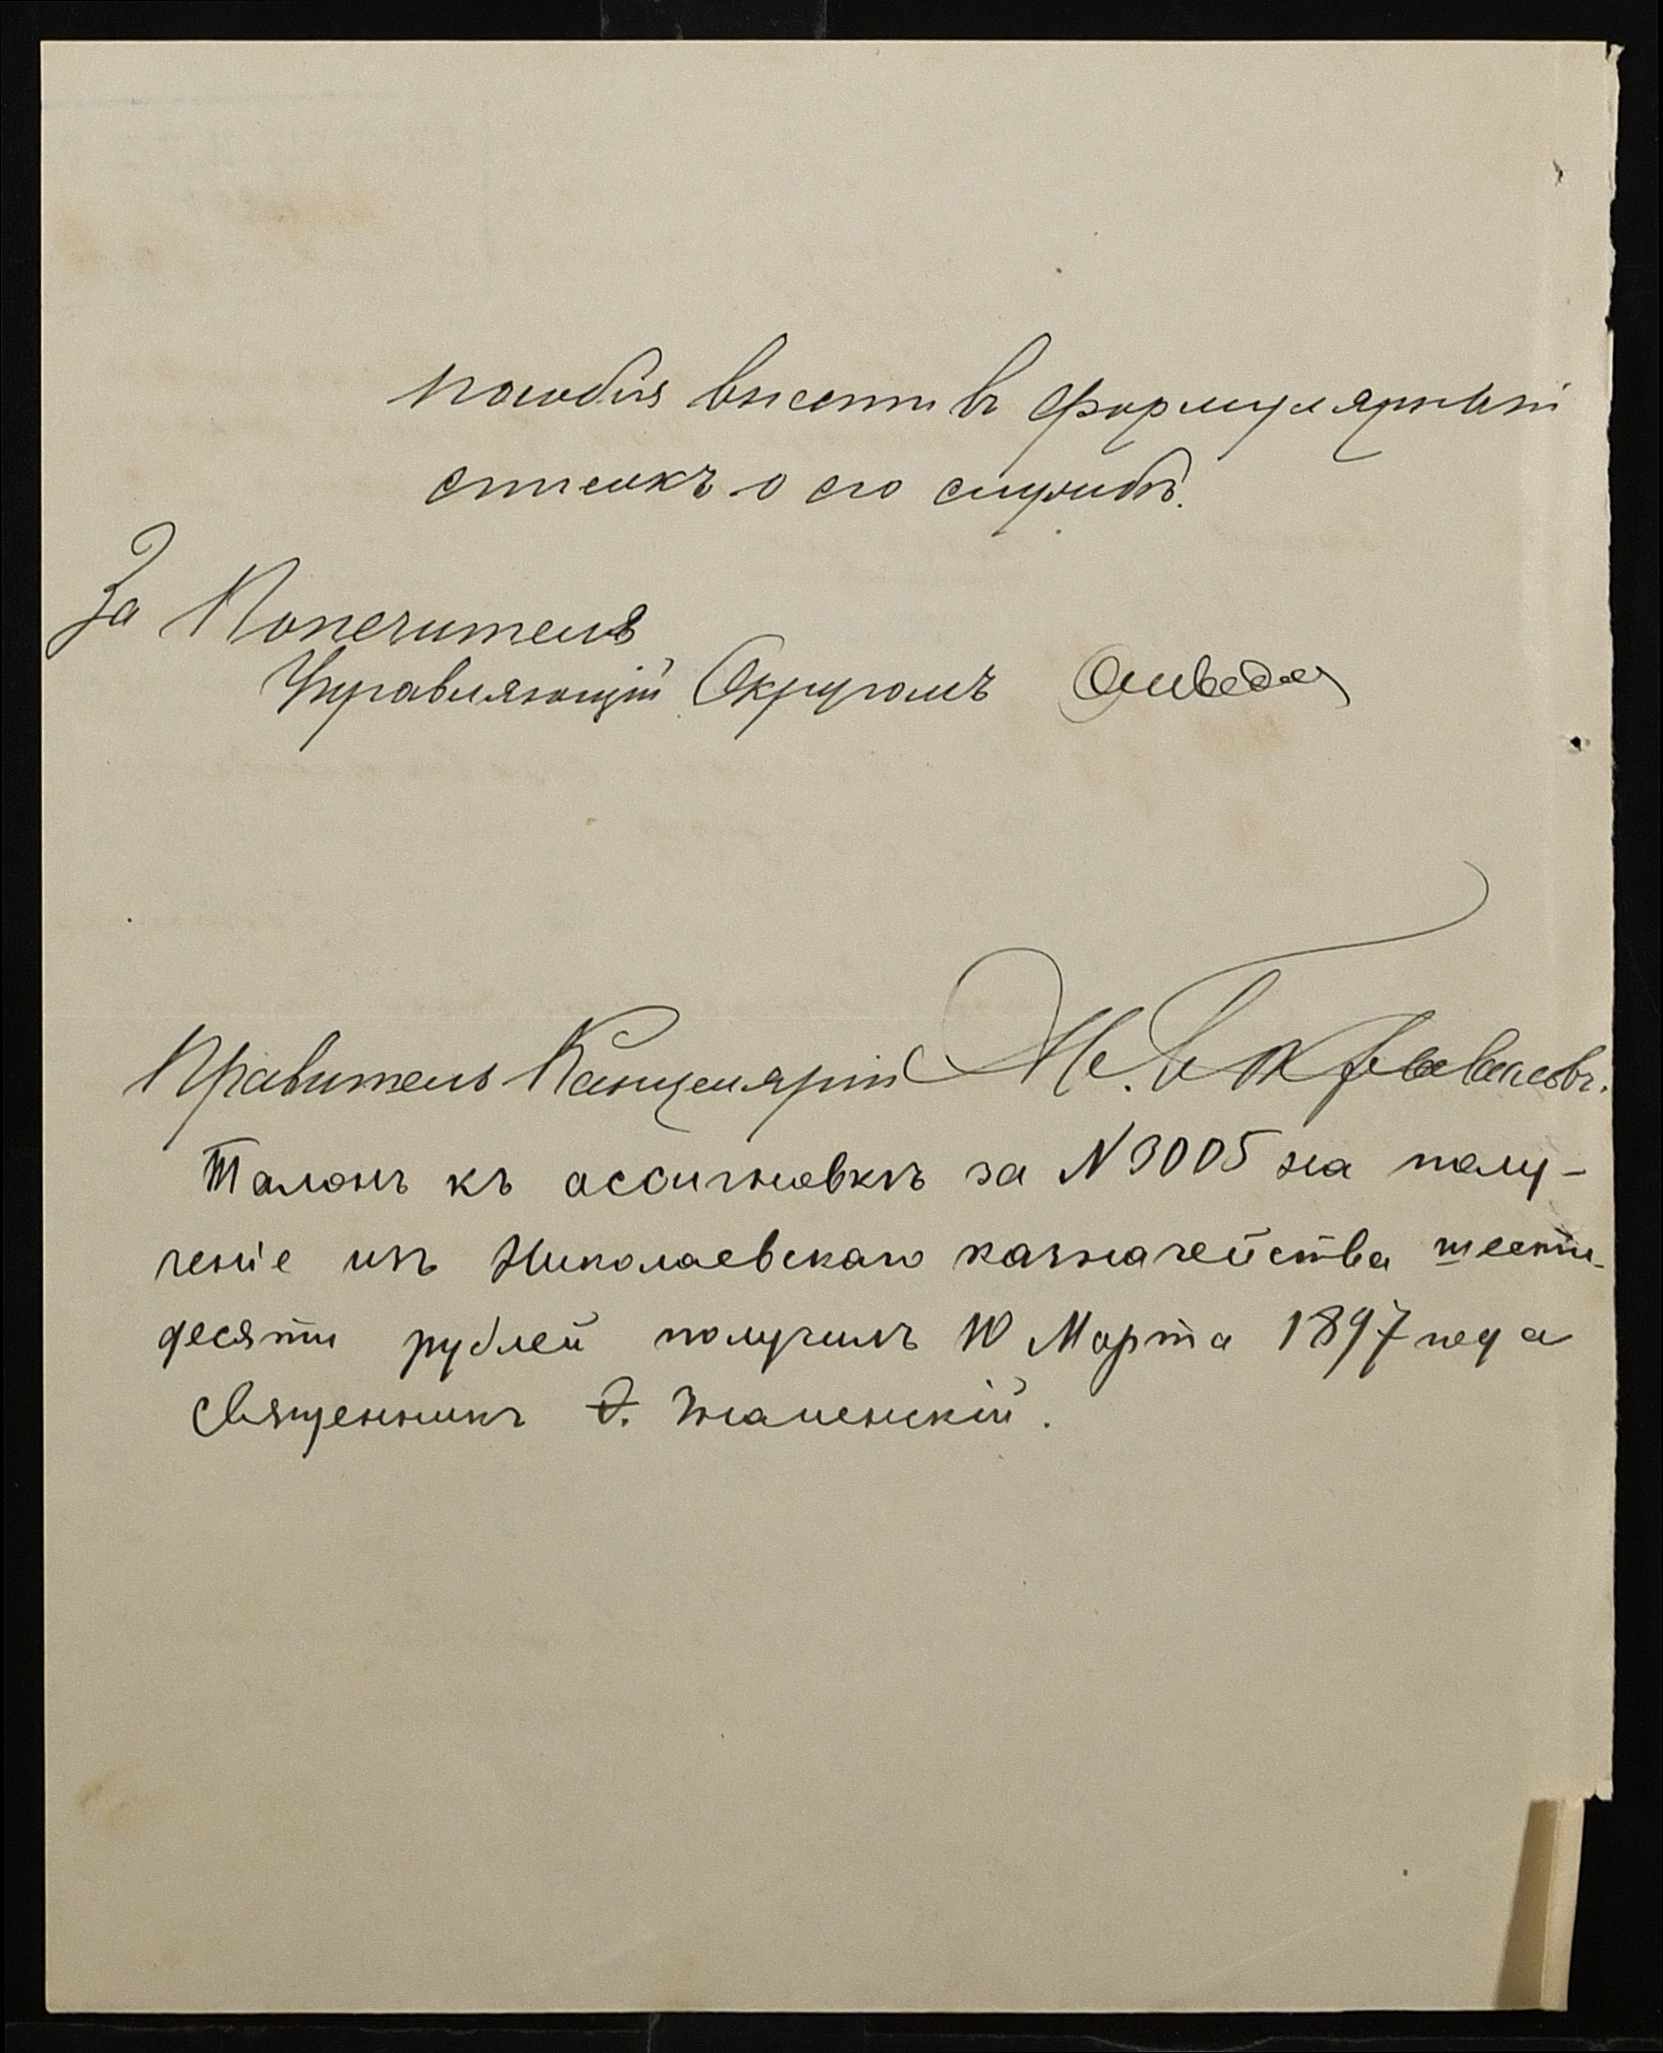 пособія внести въ формулярный
списокъ о его службѣ.
За Попечителя
Управляющій Округомъ
Правитель Канцеляріи
Талонъ къ ассигновкѣ за N 3005 на полу-
ченіе изъ Николаевскаго казначейства шести-
десяти рублей получилъ 10 Марта 1897 года
Священникъ Ѳ. Знаменскій.